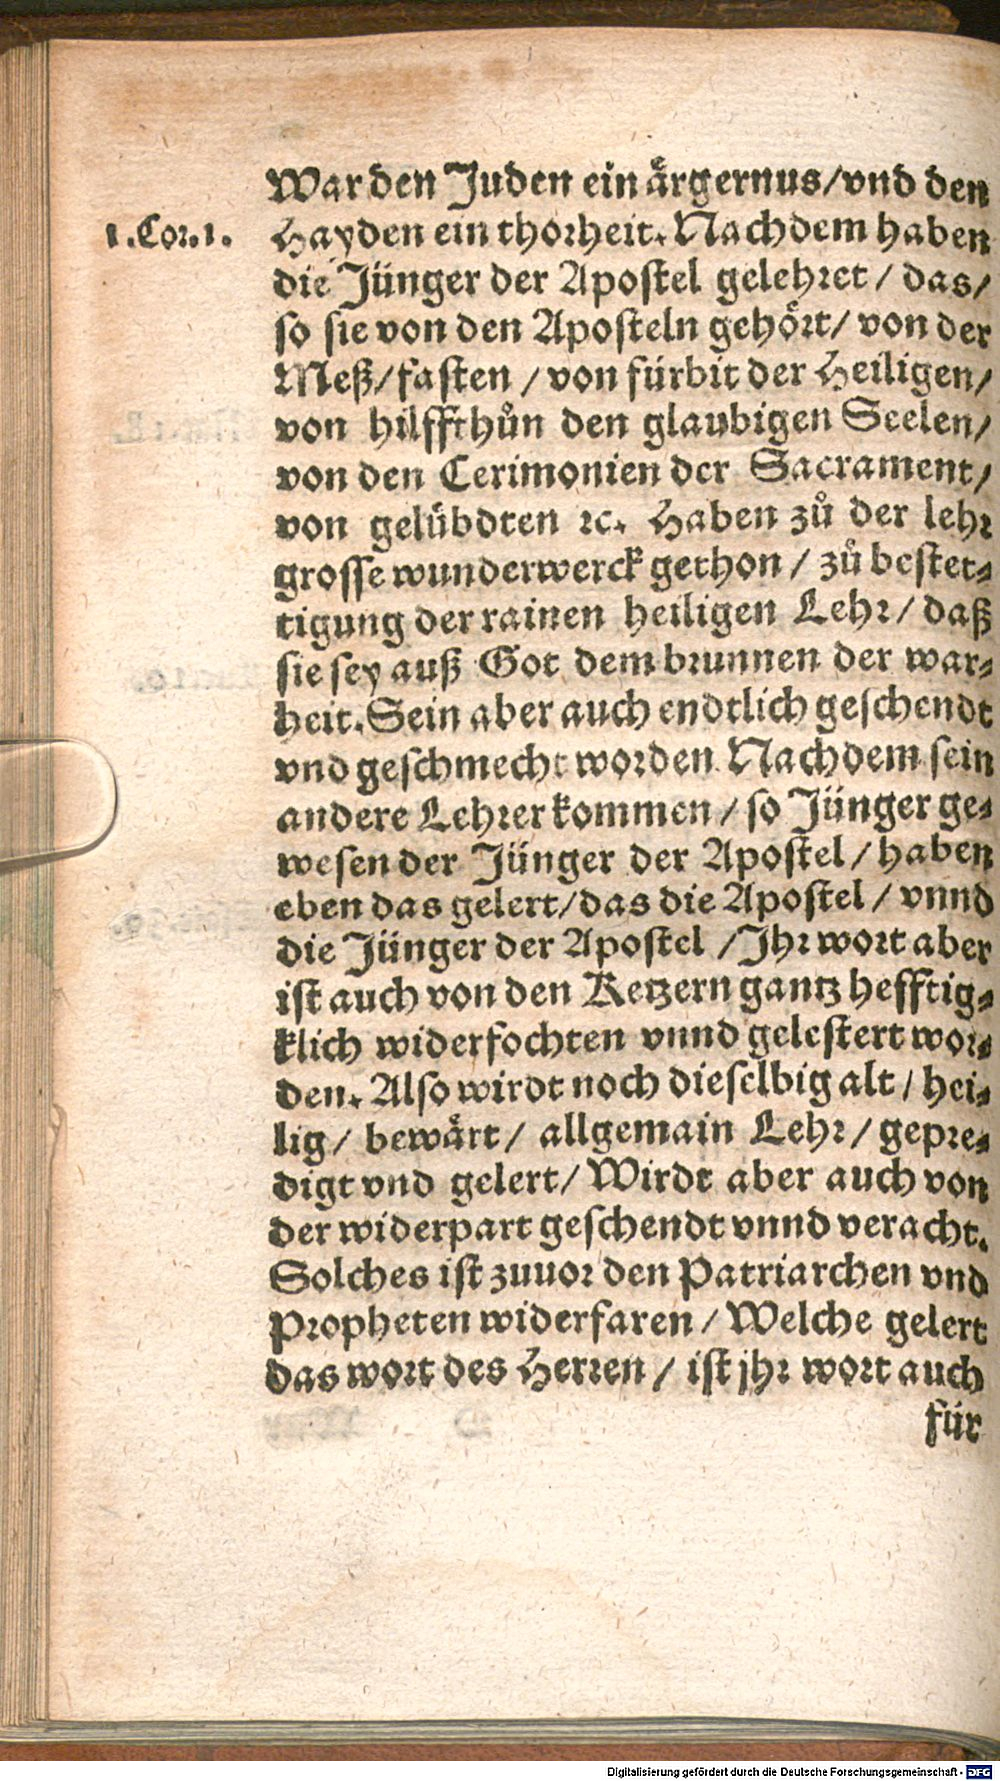 War den Juden ein ärgernus/vnd den
1.Cor.1.
Hayden ein thorheit. Nachdem haben
die Jünger der Apostel gelehret / das/
so sie von den Aposteln gehört/ von der
Meß/fasten /von fürbit der Heiligen/
von hilffthůn den glaubigen Seelen/
von den Cerimonien der Sacrament/
von gelübdten ꝛc. Haben zů der lehr
grosse wunderwerck gethon / zů bestet-
tigung der rainen heiligen Lehr/ daß
sie sey auß Got dem brunnen der war-
heit. Sein aber auch endtlich geschendt
vnd geschmecht worden. Nachdem sein
andere Lehrer kommen / so Jünger ge-
wesen der Jünger der Apostel/ haben
eben das gelert/das die Apostel / vnnd
die Jünger der Apostel /Ihr wort aber
ist auch von den Ketzern gantz hefftig-
klich widerfochten vnnd gelestert wor-
den. Also wirdt noch dieselbig alt / hei-
lig/ bewärt/ allgemain Lehr/ gepre-
digt vnd gelert/ Wirdt aber auch von
der widerpart geschendt vnnd veracht.
Solches ist zuuor den Patriarchen vnd
Propheten widerfaren / Welche gelert
das wort des Herren / ist jhr wort auch
für
Digitalisierung gefördert durch die Deutsche Forschungsgemeinschaft - DFG